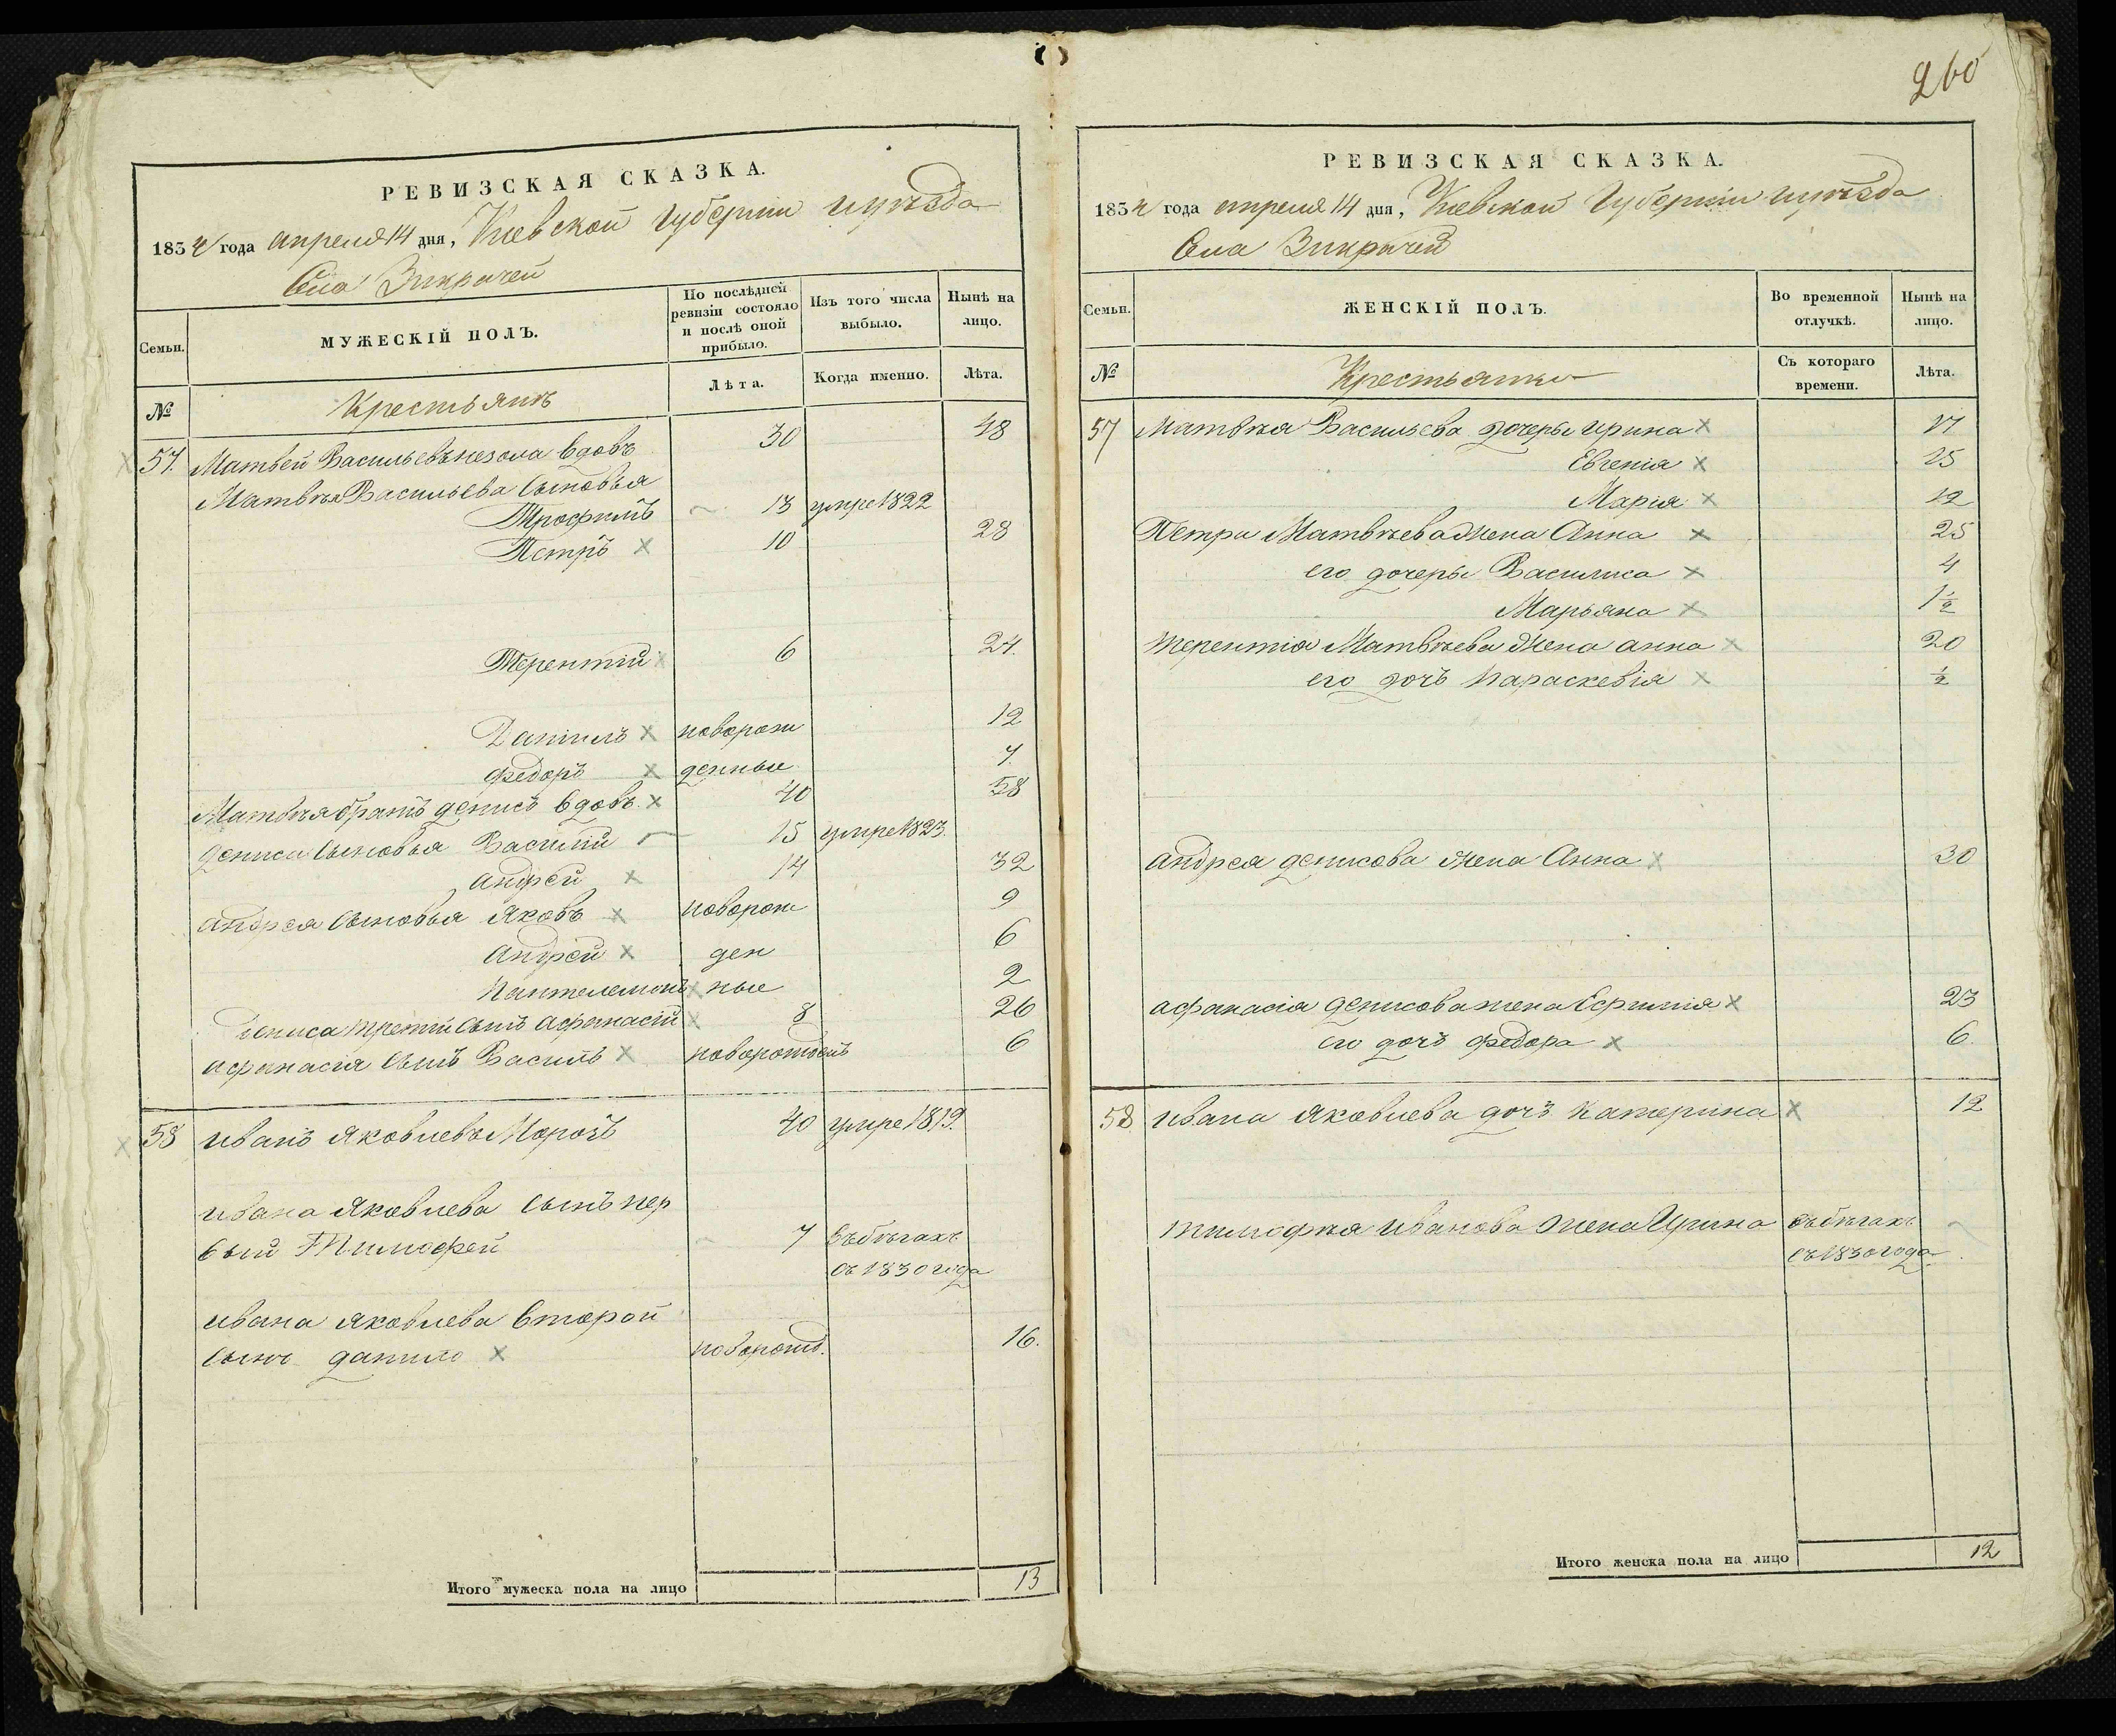 260
РЕВИЗСКАЯ СКАЗКА.
1834 года апреля 14 дня, Кіевской губерніи и уѣзда
Села Зикрачей
Семьи.
МУЖЕСКІЙ ПОЛЪ.
По послѣдней ревизіи состояло и послѣ оной прибыло.
Изъ того числа выбыло.
Нынѣ на лицо.
№
Крестьянъ
Лѣта.
Когда именно.
Лѣта.
57. Матвей Васильевъ вдовъ 30 48
Матвѣя Васильева сыновья
Трофимъ 13 умре 1822
Петръ 10 28
Терентій 6 24.
Даніилъ новорож 12
Федоръ денные 7.
Матвѣя братъ Денисъ вдовъ 40 58
Дениса сыновья Василій 15 умре 1823.
Андрей 14 32
Андрея сыновья Яковъ новорож 9
Андрей ден 6
Пантелемонъ ные 2
Дениса третій сынъ Афанасій 8 26
Афанасія сынъ Василь новорожденъ 6
58 Иванъ Яковлевъ Морозъ 40 умре 1819.
Ивана Яковлева сынъ пер
вый Тимофей 7 въ бѣгахъ
съ 1830 года
Ивана Яковлева второй
сынъ Данило новорожд. 16.
Итого мужеска пола на лицо 13
РЕВИЗСКАЯ СКАЗКА.
1834 года апреля 14 дня, Кіевской Губерніи и уѣзда
Села Зикрачей
Семьи.
ЖЕНСКІЙ ПОЛЪ.
Во временной отлучкѣ.
Нынѣ на лицо.
№
Крестьянки
Съ котораго времени.
Лѣта.
57 Матвѣя Васильева дочеры Ирина 17
Евгенія 15
Марія 12
Петра Матвѣева жена Анна 25
его дочеры Василиса 4
Марьяна 1½
Терентія Матвѣева жена Анна 20
его дочъ Параскевія ½
Андрея Денисова жена Анна 30
Афанасія Денисова жена Ефимія 23
его дочъ Федора 6.
58 Ивана Яковлева дочъ Катерина 12
Тимофѣя Иванова жена Ирина въ бѣгахъ
съ 1830 года.
Итого женска пола на лицо 12